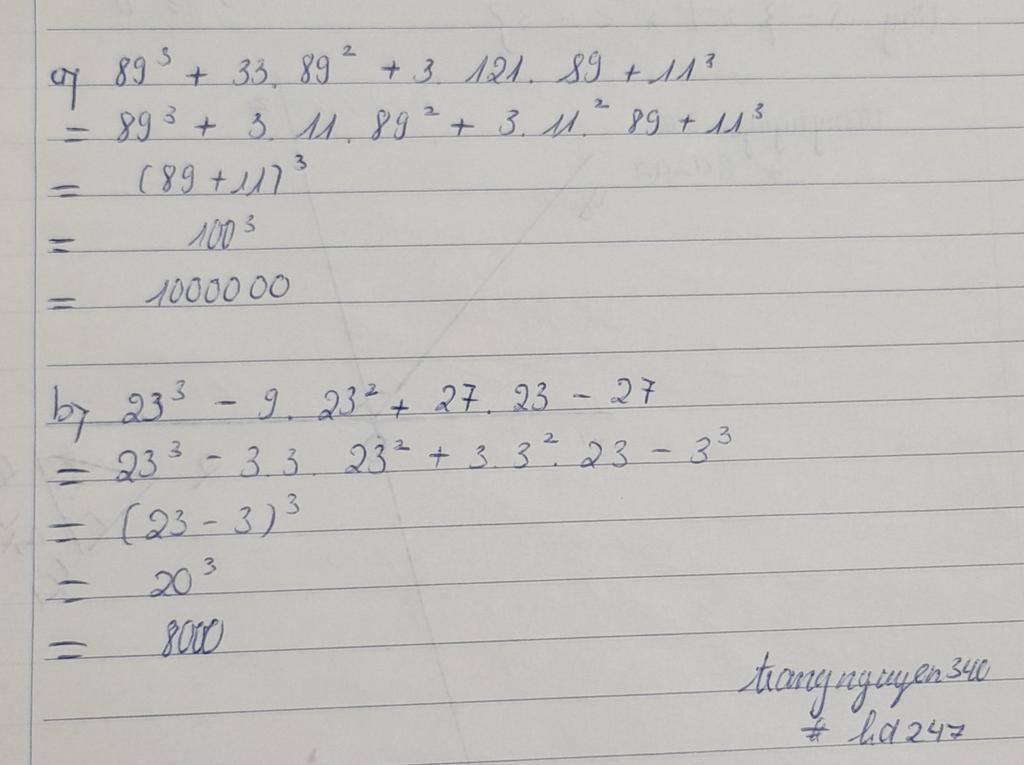 a) 89³ + 33. 89² + 3. 121. 89 + 11³
= 89³ + 3. 11. 89² + 3. 11.² 89 + 11³
= (89 + 11)³
= 100³
= 1000000
b) 23³ - 9. 23² + 27. 23 - 27
= 23³ - 3.3. 23² + 3.3². 23 - 3³
= (23 - 3)³
= 20³
= 8000
trangnguyen340
# hd247